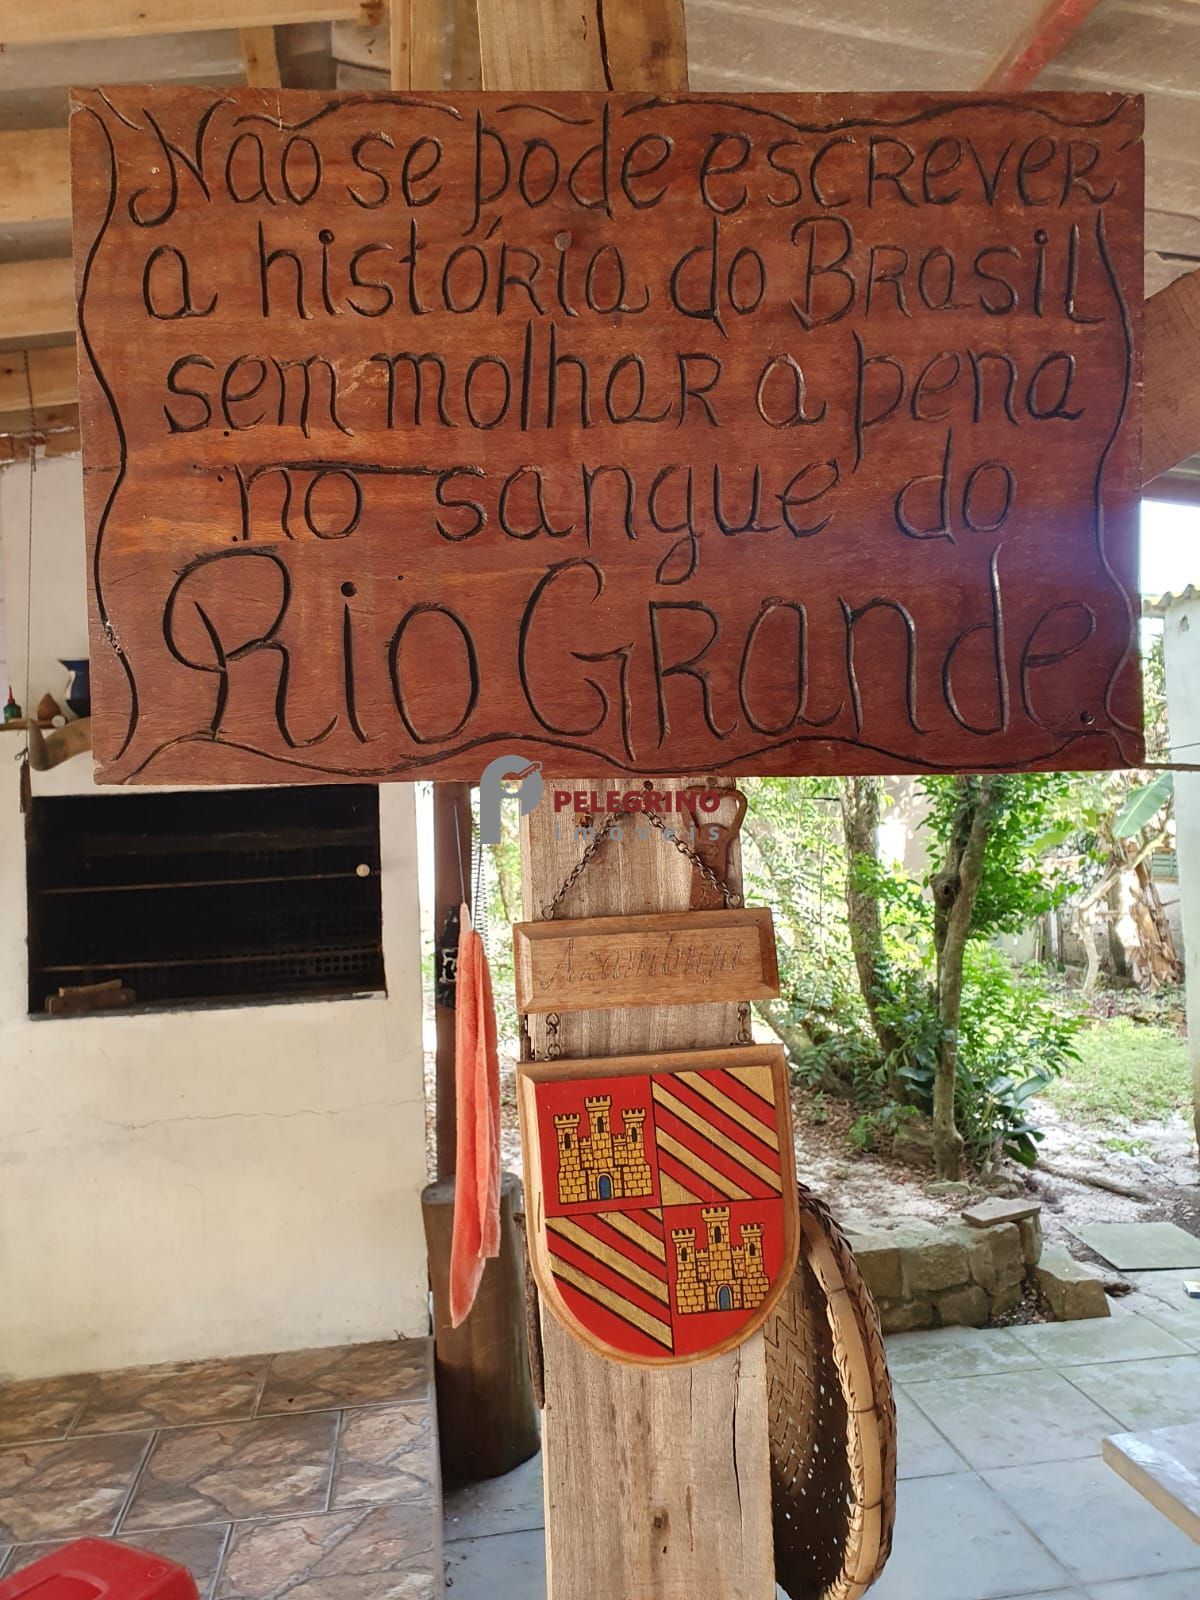 Não se pode escrever
a história do Brasil
sem molhar a pena
no sangue do
Rio Grande.
PELEGRINO
imóveis
Azambuja